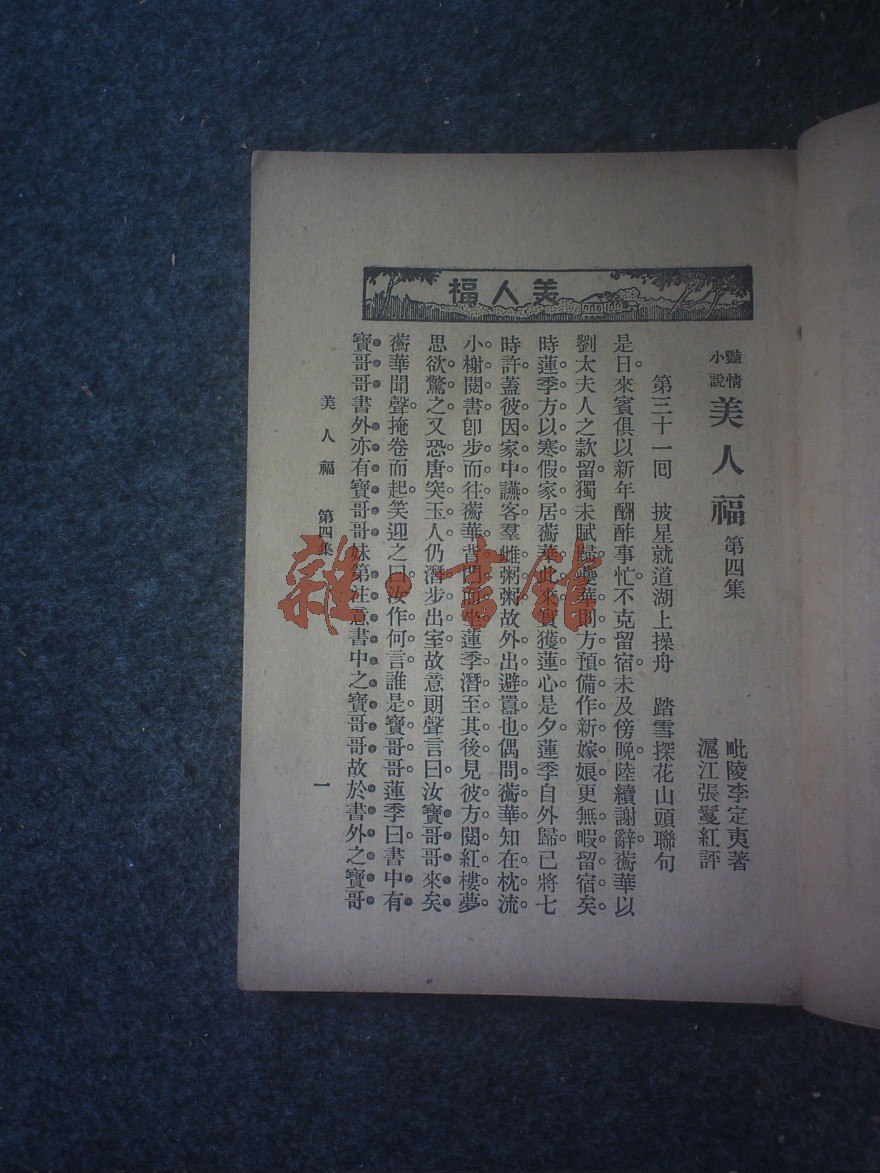 美人福
豔情小說 美人福 第四集
毗陵李定夷著
滬江張鬘紅評
第三十一回 披星就道湖上操舟 踏雪探花山頭聯句
是日來賓俱以新年酬酢事忙不克留宿未及傍晚陸續謝辭蘅華以
劉太夫人之款留獨未賦歸夔華則方預備作新嫁娘更無暇留宿矣
時蓮季方以寒假家居蘅華此來實獲蓮心是夕蓮季自外歸已將七
時許蓋彼因家中讌客羣雌粥粥故外出避囂也偶問蘅華知在枕流
小榭閱書卽步而往蘅華背門而坐蓮季潛至其後見彼方閱紅樓夢
思欲驚之又恐唐突玉人仍潛步出室故意朗聲言曰汝寶哥哥來矣
蘅華聞聲掩卷而起笑迎之曰汝作何言誰是寶哥哥蓮季曰書中有
寶哥哥書外亦有寶哥哥妹第注意書中之寶哥哥故於書外之寶哥
美人福 第四集 一
雜·書館